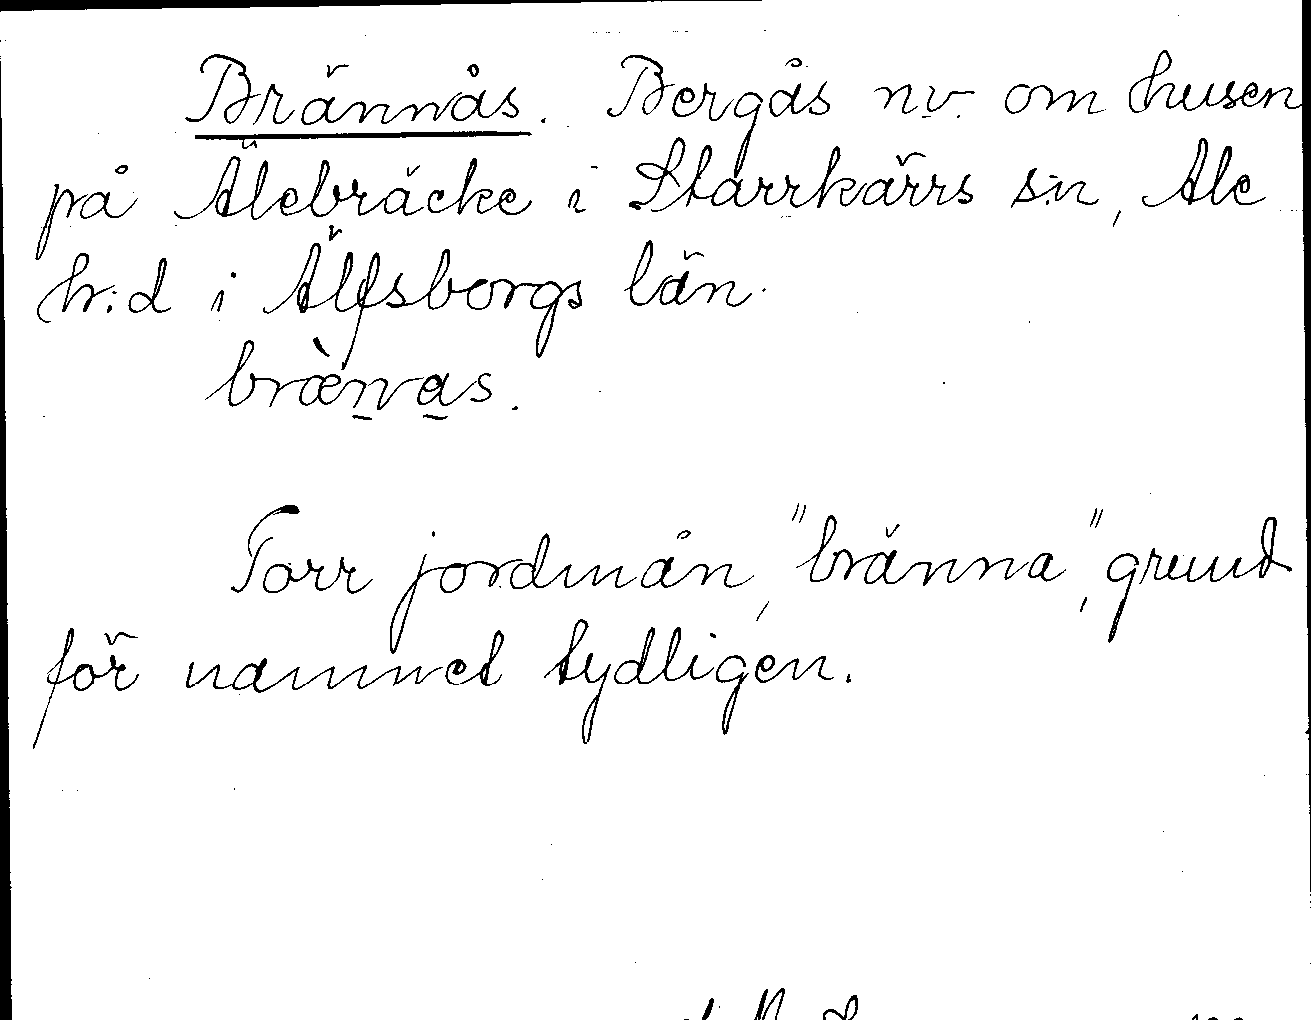 Brännås. Bergås nv. om husen
på Älebräcke i Starrkärrs s:n, Ale
h:d i Älfsborgs län.
bræ̀n̠a̠s.
Torr jordmån, "bränna", grund
för namnet tydligen.